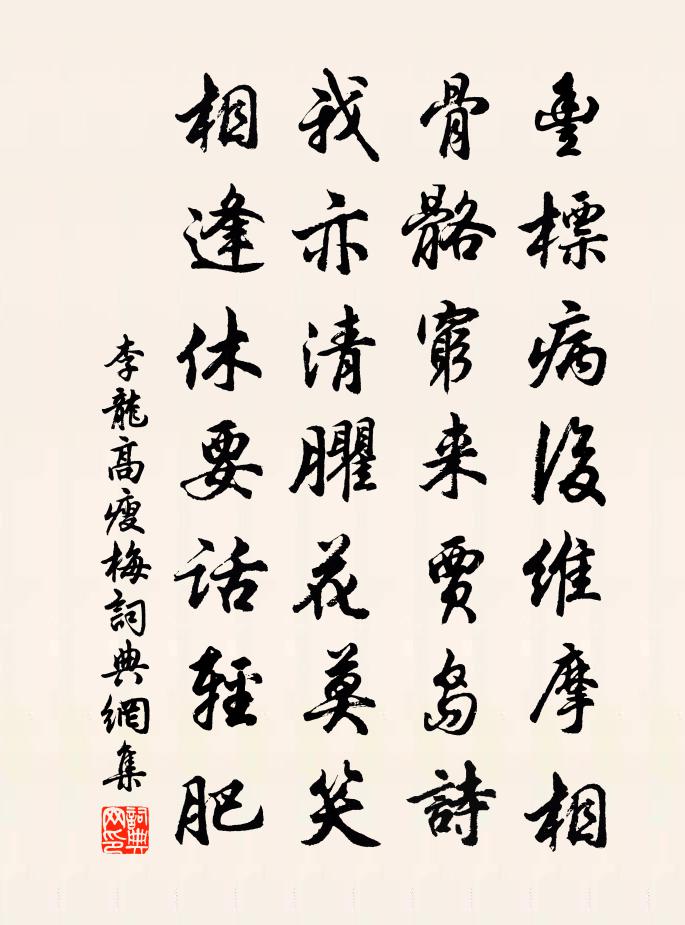 豊標病後維摩相
骨骼窮来賈島詩
我亦清臞花莫笑
相逢休要話輕肥
李龍高瘦梅詞典網集
詞典網印